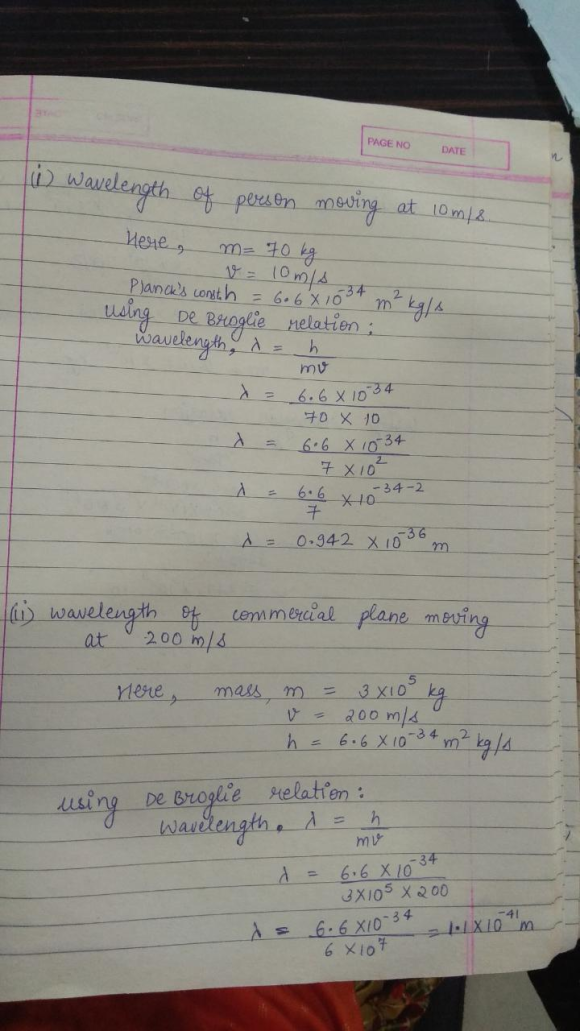 PAGE NO DATE
(i) Wavelength of person moving at 10m/s.
Here, m = 70 kg
v = 10 m/s
Planck's const. h = 6.6 × 10⁻³⁴ m² kg/s
Using De Broglie relation:
Wavelength, λ = h/mv
λ = 6.6 × 10⁻³⁴ / 70 × 10
λ = 6.6 × 10⁻³⁴ / 7 × 10²
λ = 6.6/7 × 10⁻³⁴⁻²
λ = 0.942 × 10⁻³⁶ m
(ii) Wavelength of commercial plane moving
at 200 m/s
Here, mass, m = 3 × 10⁵ kg
v = 200 m/s
h = 6.6 × 10⁻³⁴ m² kg/s
Using De Broglie relation:
Wavelength. λ = h/mv
λ = 6.6 × 10⁻³⁴ / 3×10⁵ × 200
λ = 6.6 × 10⁻³⁴ / 6 × 10⁷ = 1.1 × 10⁻⁴¹ m